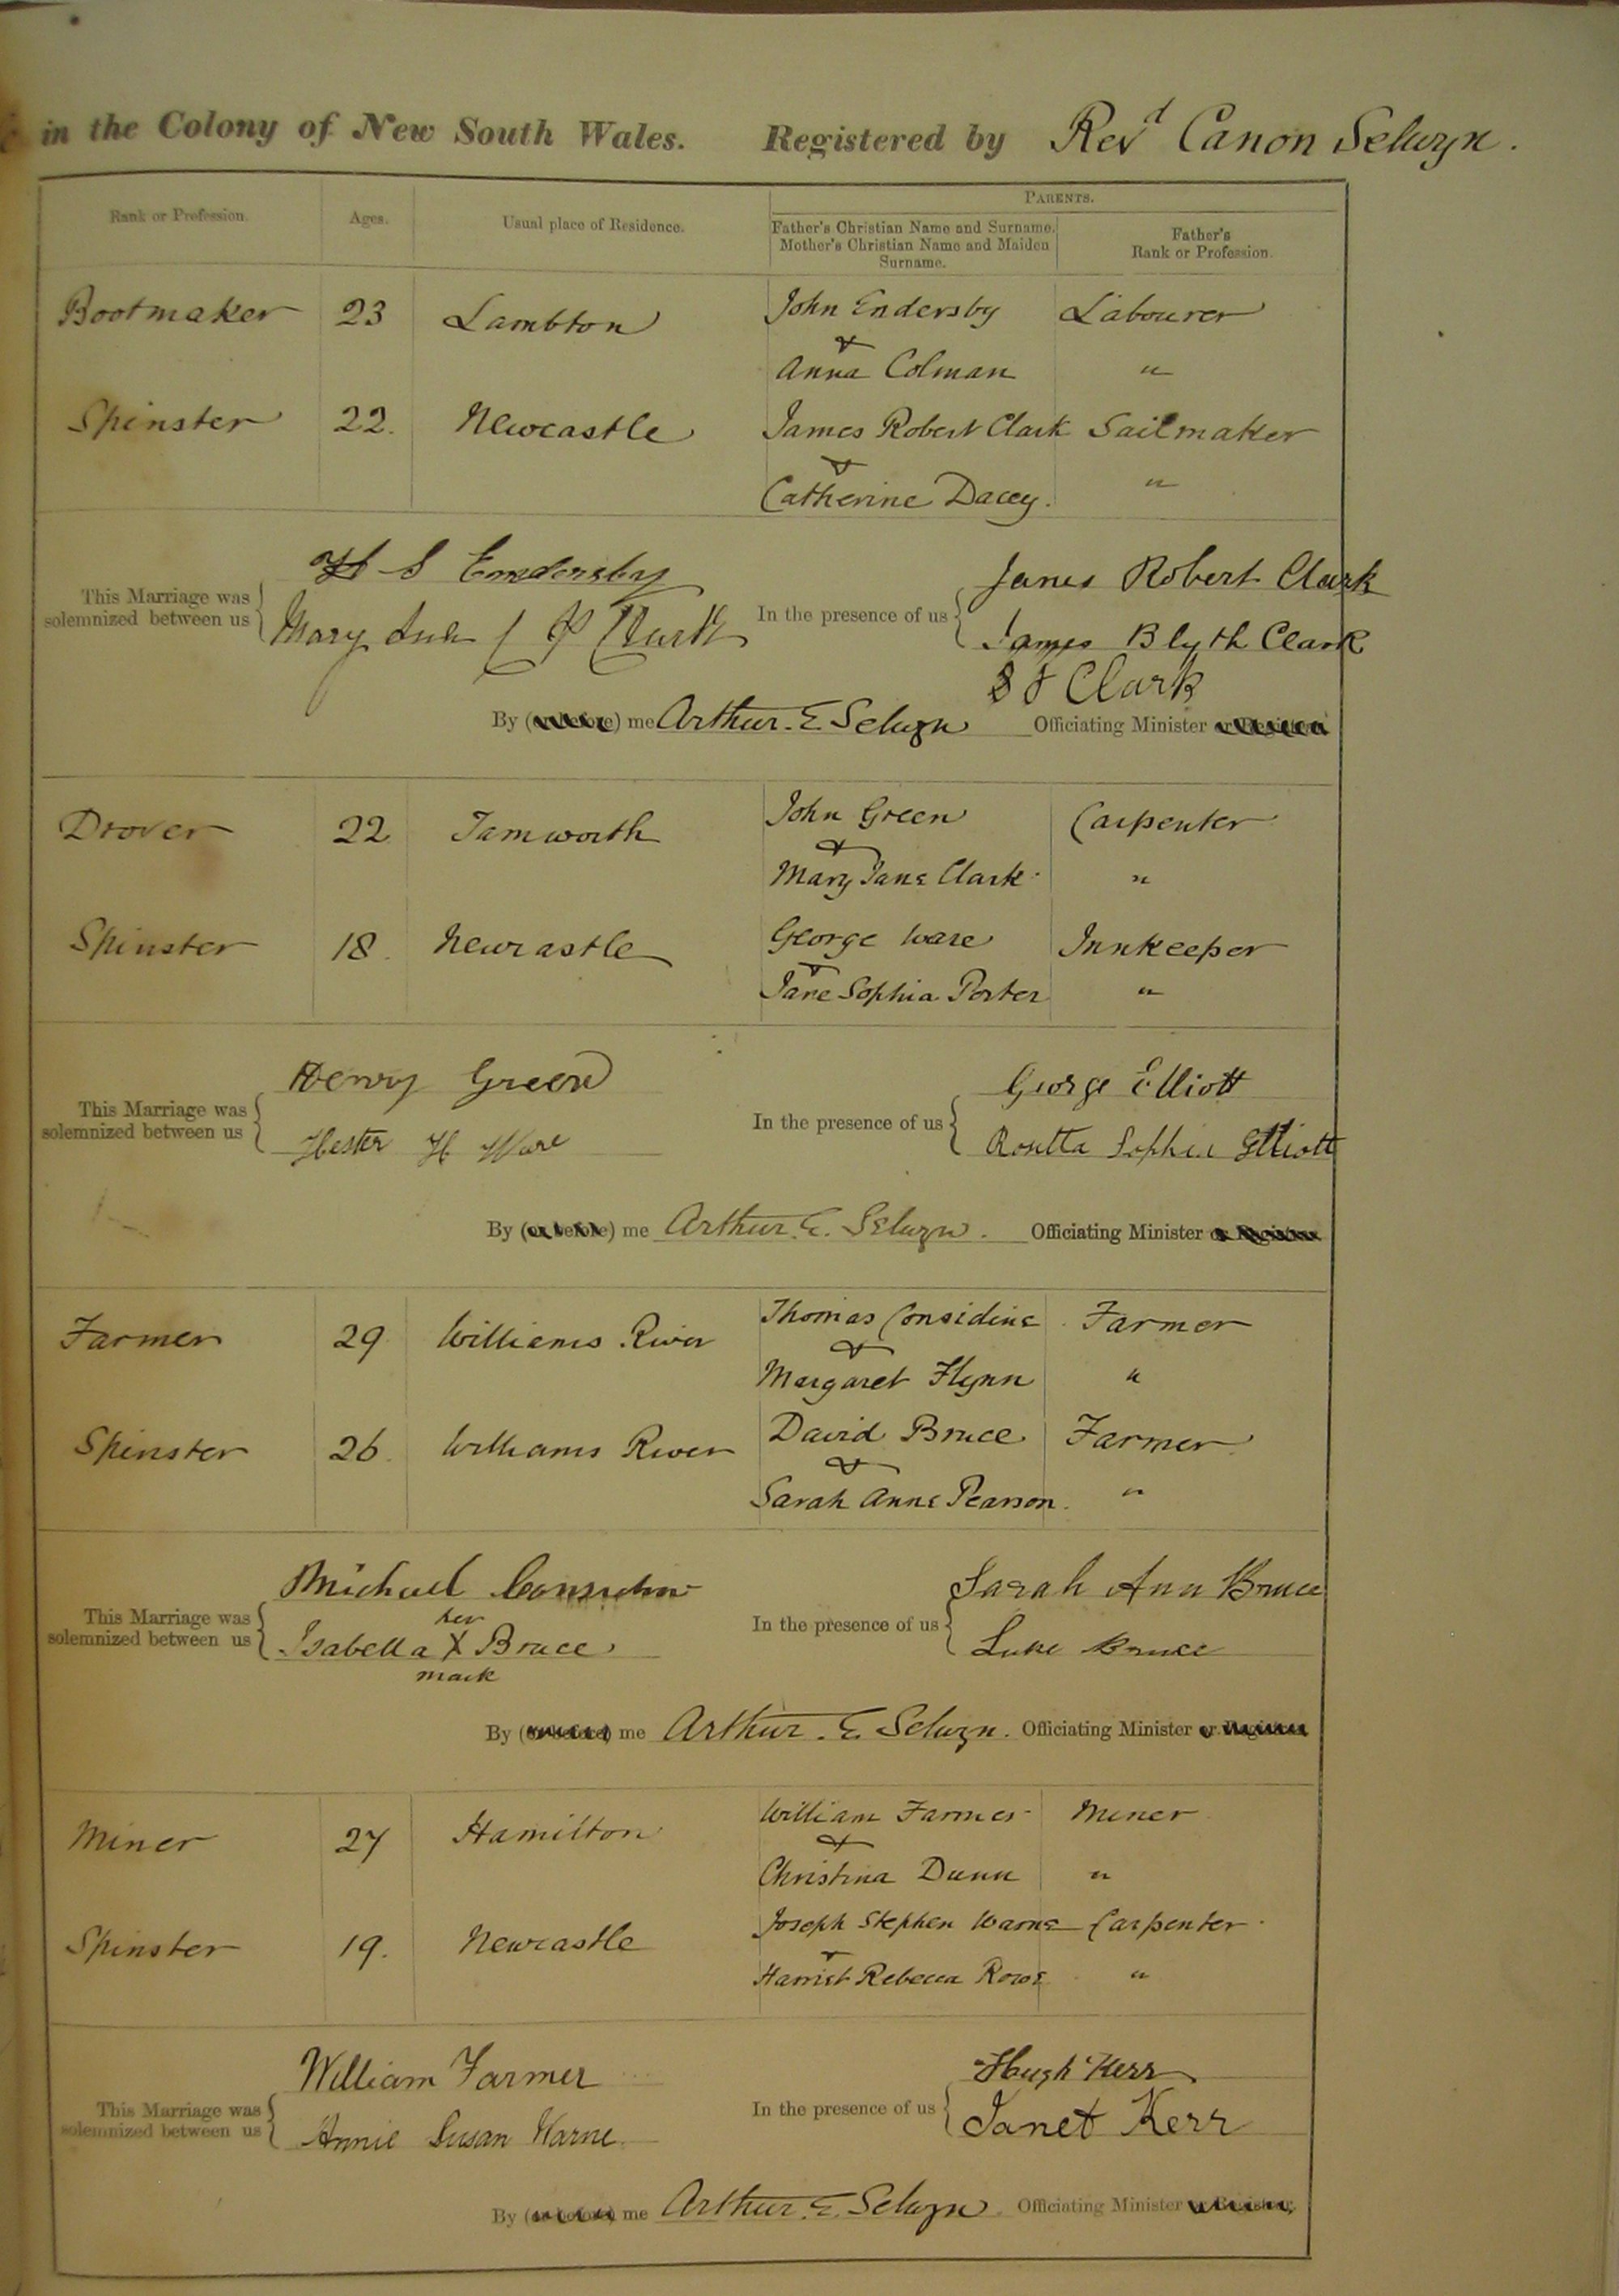 in the Colony of New South Wales. Registered by Revd Canon Selwyn.
PARENTS.
Rank or Profession. Ages. Usual place of Residence. Father's Christian Name and Surname. Mother's Christian Name and Maiden Surname. Father's Rank or Profession.
Bootmaker 23 Lambton John Endersby Labourer
&
Anna Colman "
Spinster 22. Newcastle James Robert Clark Sailmaker
&
Catherine Dacey. "
H S Endersby James Robert Clark
This Marriage was solemnized between us In the presence of us
Mary Clark James Blyth Clark
S J Clark
By (or before) me Arthur. E. Selwyn Officiating Minister
Drover 22 Tamworth John Green Carpenter
&
Mary Jane Clark "
Spinster 18. Newcastle George Ware Innkeeper
&
Jane Sophia Porter "
Henry Green George Elliott
This Marriage was solemnized between us In the presence of us
Hester H Ware Rosetta Sophia Elliott
By (or before) me Arthur. E. Selwyn. Officiating Minister or Registrar
Farmer 29 Williams River Thomas Considine Farmer
&
Margaret Flynn "
Spinster 26. Williams River David Bruce Farmer
&
Sarah Anne Pearson. "
Michael Considine Sarah Ann Bruce
This Marriage was solemnized between us In the presence of us
her
Isabella X Bruce Luke Bruce
mark
By (or before) me Arthur. E. Selwyn. Officiating Minister or Registrar
Miner 27 Hamilton William Farmer Miner
&
Christina Dunn "
Spinster 19. Newcastle Joseph Stephen Warne Carpenter
&
Harriet Rebecca Rowe "
William Farmer Hugh Kerr
This Marriage was solemnized between us In the presence of us
Annie Susan Warne. Janet Kerr
By (or before) me Arthur. E. Selwyn Officiating Minister or Registrar